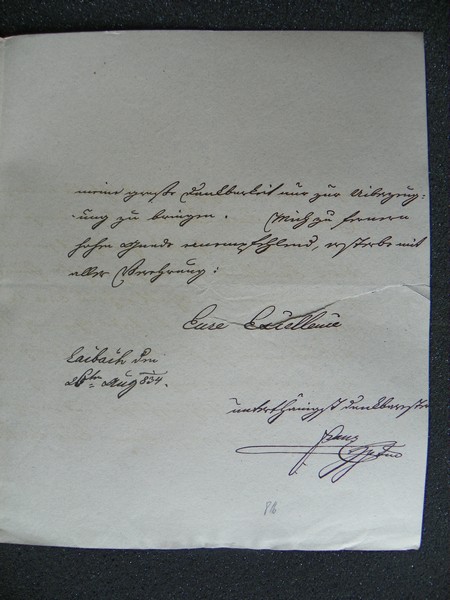 meine große Dankbarkeit nur zur Uiberzeug-
ung zu bringen. Mich zu fernern
hohen Gnade anempfehlend, ersterbe mit
aller Verehrung:
Eure Excellenz
Laibach den
26ten Aug 834.
unterthänigst dankbarster
Franz
86